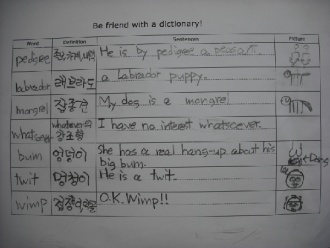 Be friend with a dictionary!
Word Definition Sentences Picture
pedigree He is by pedigree a
labrador 래브라도 a Labrador puppy.
mongrel 잡종견 My dog is a mongrel
whatsoever whatever의 강조형 I have no interest whatsoever.
bum 엉덩이 She has a real hang-up about his
big bum.
twit 멍청이 He is a twit.
wimp O.K. Wimp!!